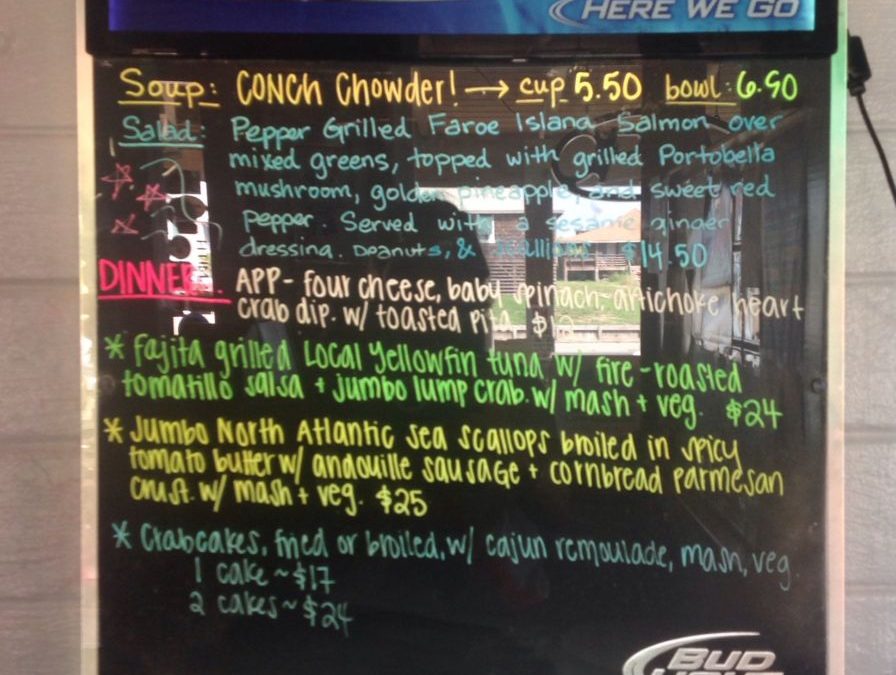 HERE WE GO
Soup: CONCH Chowder! → cup 5.50 bowl: 6.90
Salad: Pepper Grilled Faroe Island Salmon over
mixed greens, topped with grilled Portobella
mushroom, golden pineapple, and sweet red
pepper. Served with a sesame ginger
dressing. peanuts, & scallions $14.50
DINNER: APP - four cheese, baby spinach-artichoke heart
crab dip. w/ toasted pita
* Fajita grilled Local Yellowfin tuna w/ fire-roasted
tomatillo salsa + jumbo lump crab. w/ mash + veg. $24
* Jumbo North Atlantic sea scallops broiled in spicy
tomato butter w/ andouille sausage + cornbread parmesan
crust. w/ mash + veg. $25
* Crabcakes, fried or broiled, w/ cajun remoulade, mash, veg.
1 cake ~ $17
2 cakes ~ $24
BUD
LIGHT